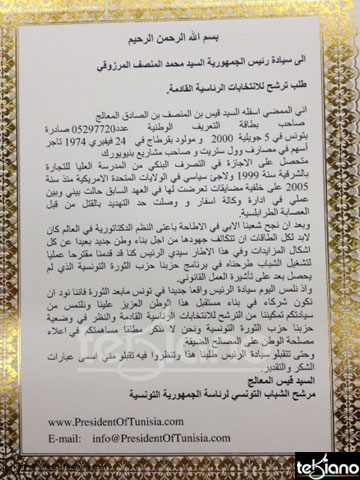 بسم الله الرحمن الرحيم
الى سيادة رئيس الجمهورية السيد محمد المنصف المرزوقي
طلب ترشح للانتخابات الرئاسية القادمة.
اني الممضي اسفله السيد قيس بن المنصف بن الصادق المعالج
صاحب بطاقة التعريف الوطنية عدد05297720 صادرة
بتونس في 5 جويلية 2000 و مولود بقرطاج في 24 فيفري 1974 تاجر
أسهم في مصارف وول ستريت و صاحب مشاريع بنيويورك
متحصل على الاجازة في التصرف البنكي من المدرسة العليا للتجارة
بالشرقية سنة 1999 ولاجئ سياسي في الولايات المتحدة الامريكية منذ سنة
2005 على خلفية مضايقات تعرضت لها في العهد السابق حالت بيني وبين
عملي في ادارة وكالة اسفار و وصلت حد التهديد بالقتل من قبل
العصابة الطرابلسية.
وبعد ان نجح شعبنا الابي في الاطاحة باعتى النظم الدكتاتورية في العالم كان
لابد لكل الطاقات ان تتكاتف جهودها من اجل بناء وطن جديد بعيدا عن كل
اشكال المزايدات وفي هذا الاطار سيدي الرئيس كنا قد قدمنا مقترحا عمليا
لتشغيل الشباب طرحناه في برنامج حزبنا حزب الثورة التونسية الذي لم
يحصل بعد على تأشيرة العمل القانوني.
واذ نلمس اليوم سيادة الرئيس واقعا جديدا في تونس مابعد الثورة فاننا نود ان
نكون شركاء في بناء مستقبل هذا الوطن العزيز علينا ونلتمس من
سيادتكم تمكيننا من الترشح للانتخابات الرئاسية القادمة والنظر في وضعية
حزبنا حزب الثورة التونسية ونحن لا ننكر مطلنا مساهمتكم في اعلاء
مصلحة الوطن على المصالح الضيقة.
وحتى تتقبلو سيادة الرئيس طلبنا هذا وتنظروا فيه تقبلو مني اسمى عبارات
الشكر والتقدير.
السيد قيس المعالج
مرشح الشباب التونسي لرئاسة الجمهورية التونسية
www.PresidentOfTunisia.com
E-mail: info@PresidentOfTunisia.com
tekiano
tekiano